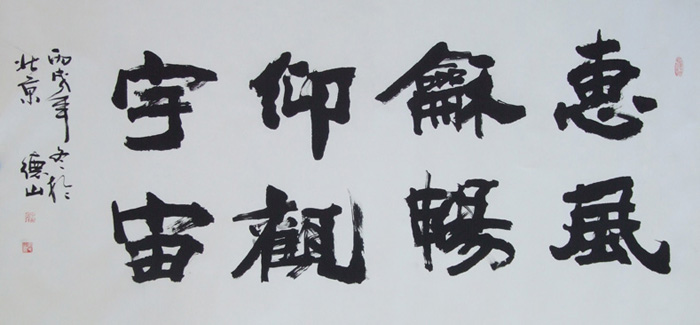 惠風
龢暢
仰觀
宇宙
丙戌年冬於
北京 德山